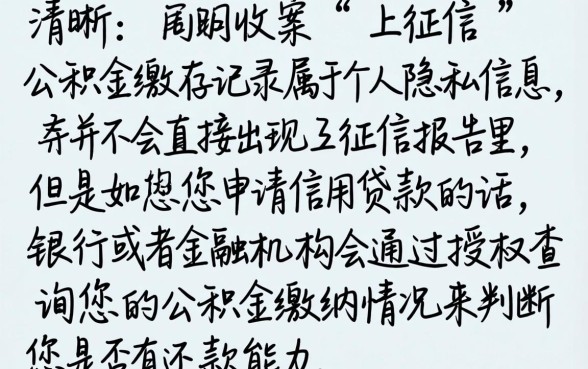 清晰：周期收案“上征信”
公积金缴存记录属于个人隐私信息，
并不会直接出现征信报告里，
但是如您申请信用贷款的话，
银行或者金融机构会通过授权查
询您的公积金缴纳情况来判断
您是否有还款能力